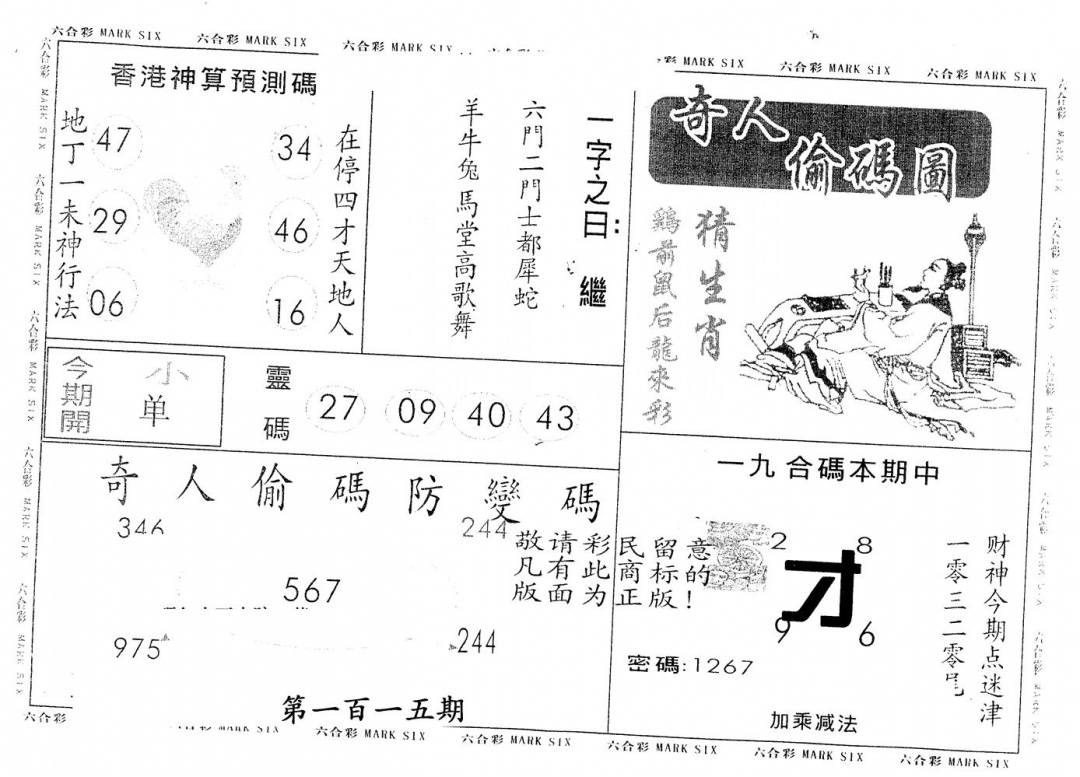 六合彩 MARK SIX 六合彩 MARK SIX 六合彩 MARK SIX
彩 MARK SIX 六合彩 MARK SIX 六合彩 MARK SIX
香港神算預測碼
地丁一未神行法
47 34
29 46
06 16
在停四才天地人
一字之曰: 繼
六門二門士都犀蛇
羊牛兔馬堂高歌舞
奇人偷碼圖
猜生肖
鷄前鼠后龍來彩
今期開
小
单
靈碼
27 09 40 43
奇人偷碼防變碼
346 244
567
975 244
敬请彩民留意
凡有此商标的
版面为正版!
第一百一五期
一九合碼本期中
2 8
才
9 6
密碼:1267
财神今期点迷津
一零三二零
加乘减法
六合彩
六合彩 MARK SIX 六合彩 MARK SIX 六合彩 MARK SIX 六合彩 MARK SIX 六合彩 MARK SIX